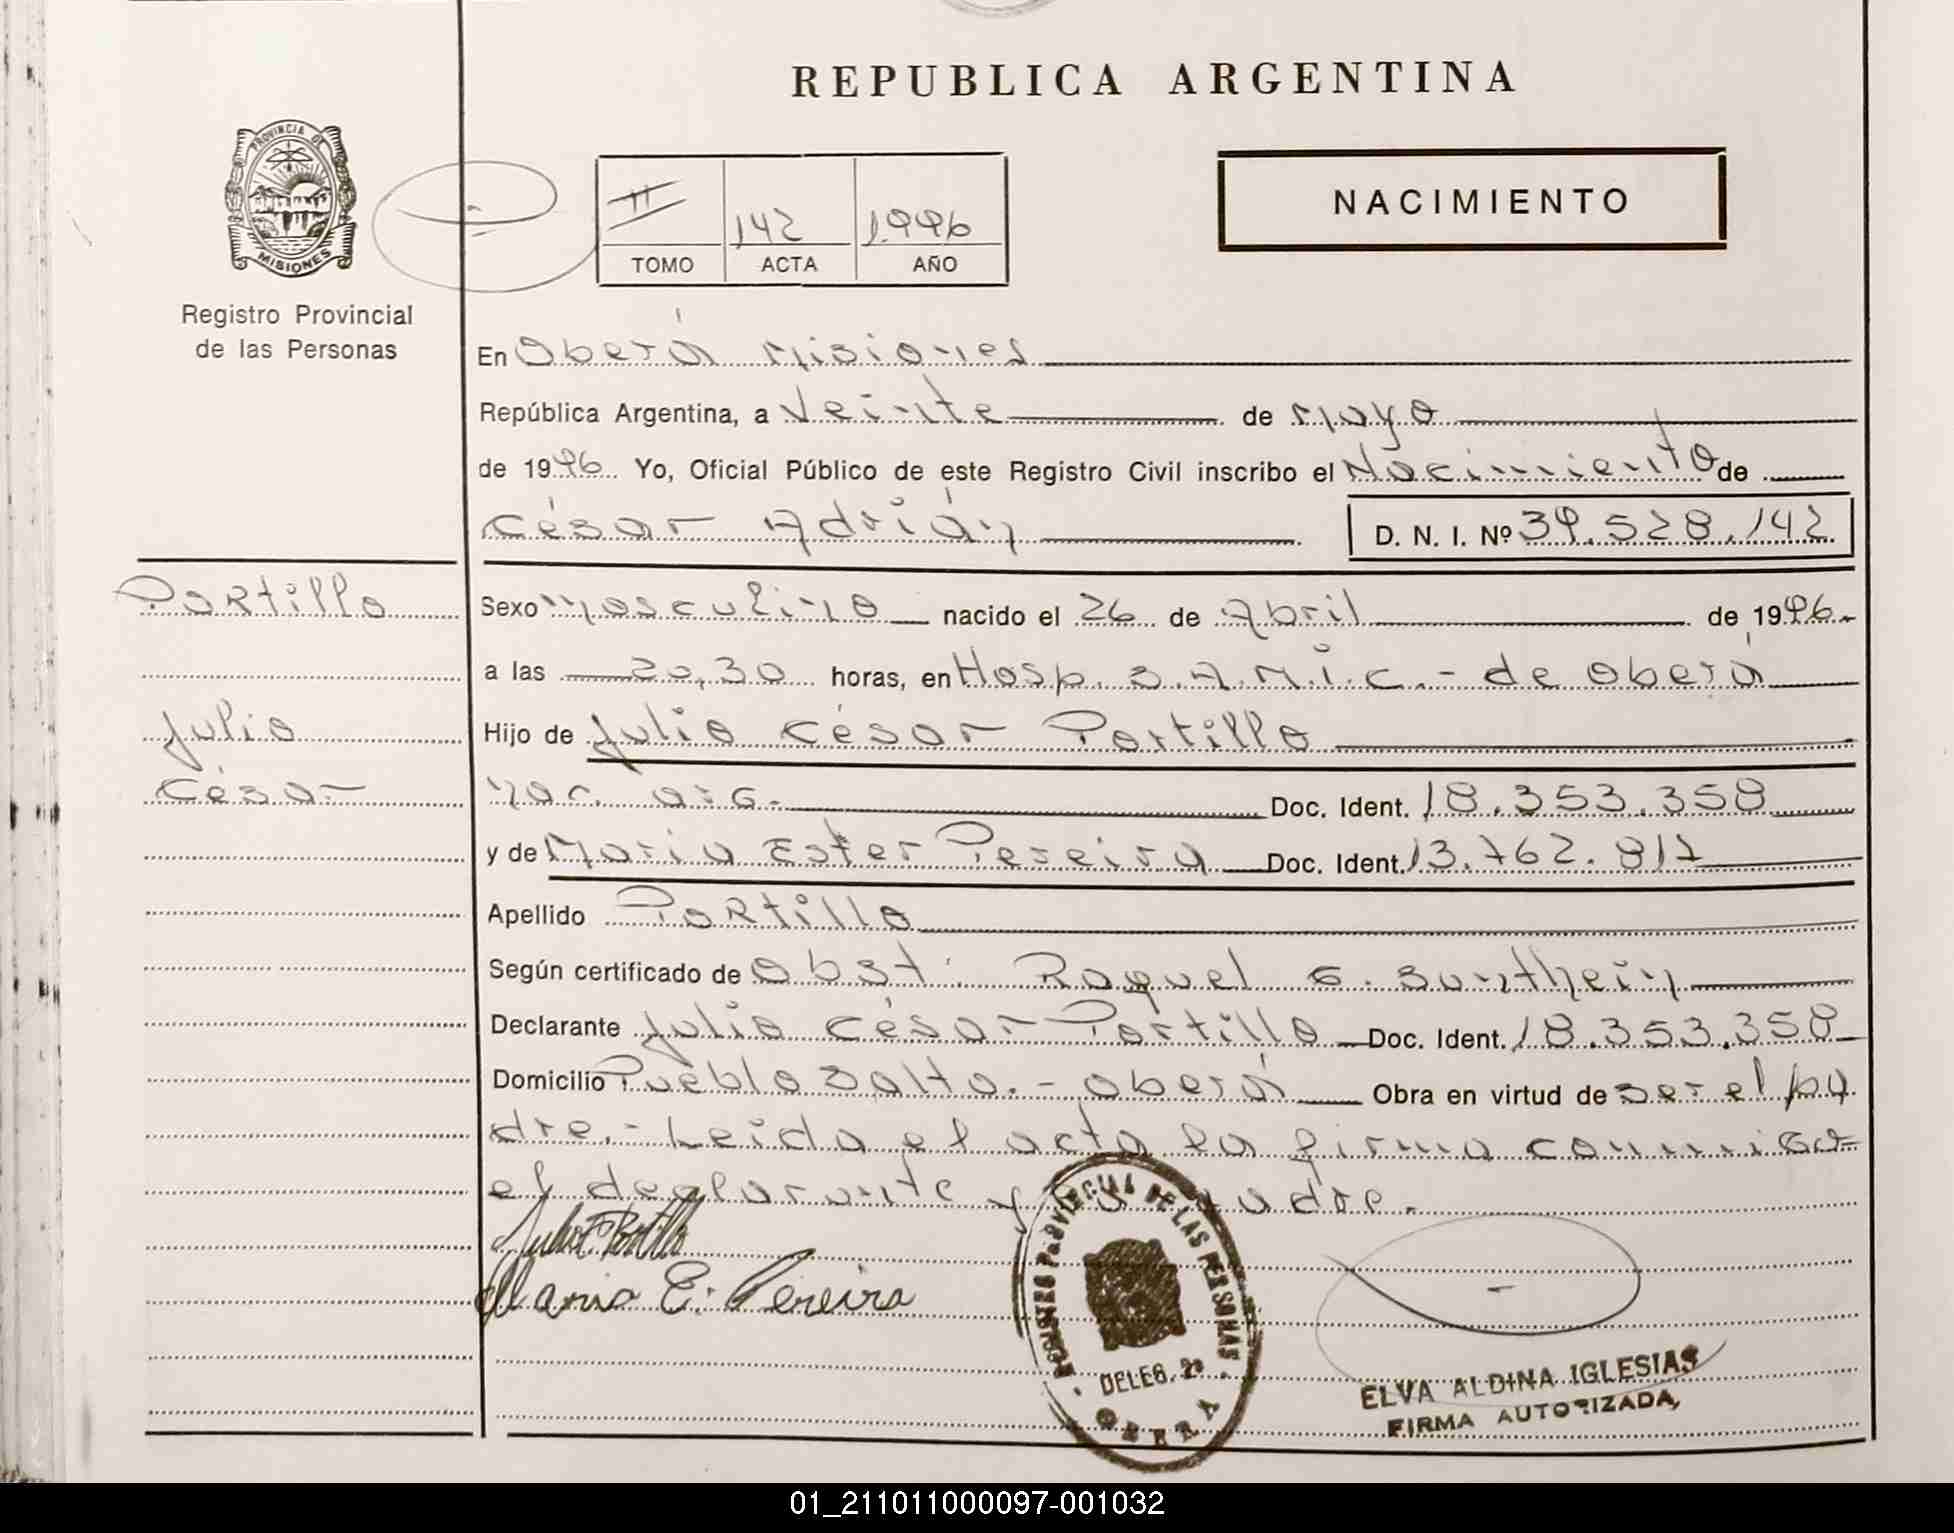 REPUBLICA ARGENTINA
PROVINCIA DE
MISIONES
Registro Provincial
de las Personas
II
TOMO
142
ACTA
1996
AÑO
NACIMIENTO
En Oberá Misiones
República Argentina, a Veinte de Mayo
de 1996. Yo, Oficial Público de este Registro Civil inscribo el Nacimiento de
César Adrián
D. N. I. Nº 39.528.142
Portillo
Julio
César
Sexo Masculino nacido el 26 de Abril de 1996.-
a las 20,30 horas, en Hosp. S.A.M.i.C.- de Oberá
Hijo de Julio César Portillo
Nac. arg. Doc. Ident. 18.353.358
y de Maria Ester Pereira Doc. Ident. 13.762.817
Apellido Portillo
Según certificado de Obst. Raquel G. Sunthein
Declarante Julio César Portillo Doc. Ident. 18.353.358
Domicilio Pueblo Salto.- Oberá Obra en virtud de ser el pa
dre.- Leida el acta la firma conmigo
el declarante y la madre.
Maria E. Pereira
REGISTRO PROVINCIAL DE LAS PERSONAS
DELEG. 2ª
OBERA
ELVA ALDINA IGLESIAS
FIRMA AUTORIZADA
01_211011000097-001032